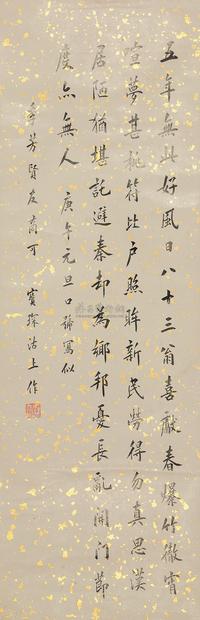 五年無此好風日八十三翁喜獻春爆竹徹宵
喧夢甚桃符比戶照眸新民勞得勿真思漢
居陋猶堪託避秦却為鄉邦憂長亂開門節
度亦無人 庚午元旦口號寫似
芳賢友商可 寶琛沽上作